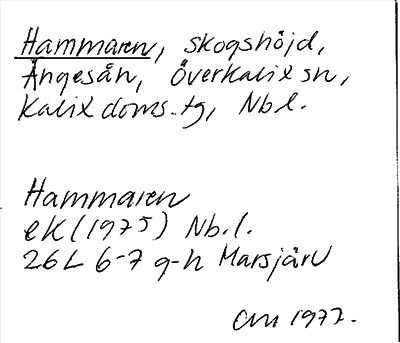 Hammaren, skogshöjd,
Ängesån, Överkalix sn,
Kalix doms.tg, Nb.l.
Hammaren
ek (1975) Nb.l.
26L 6-7 g-h Marsjärv
1977.